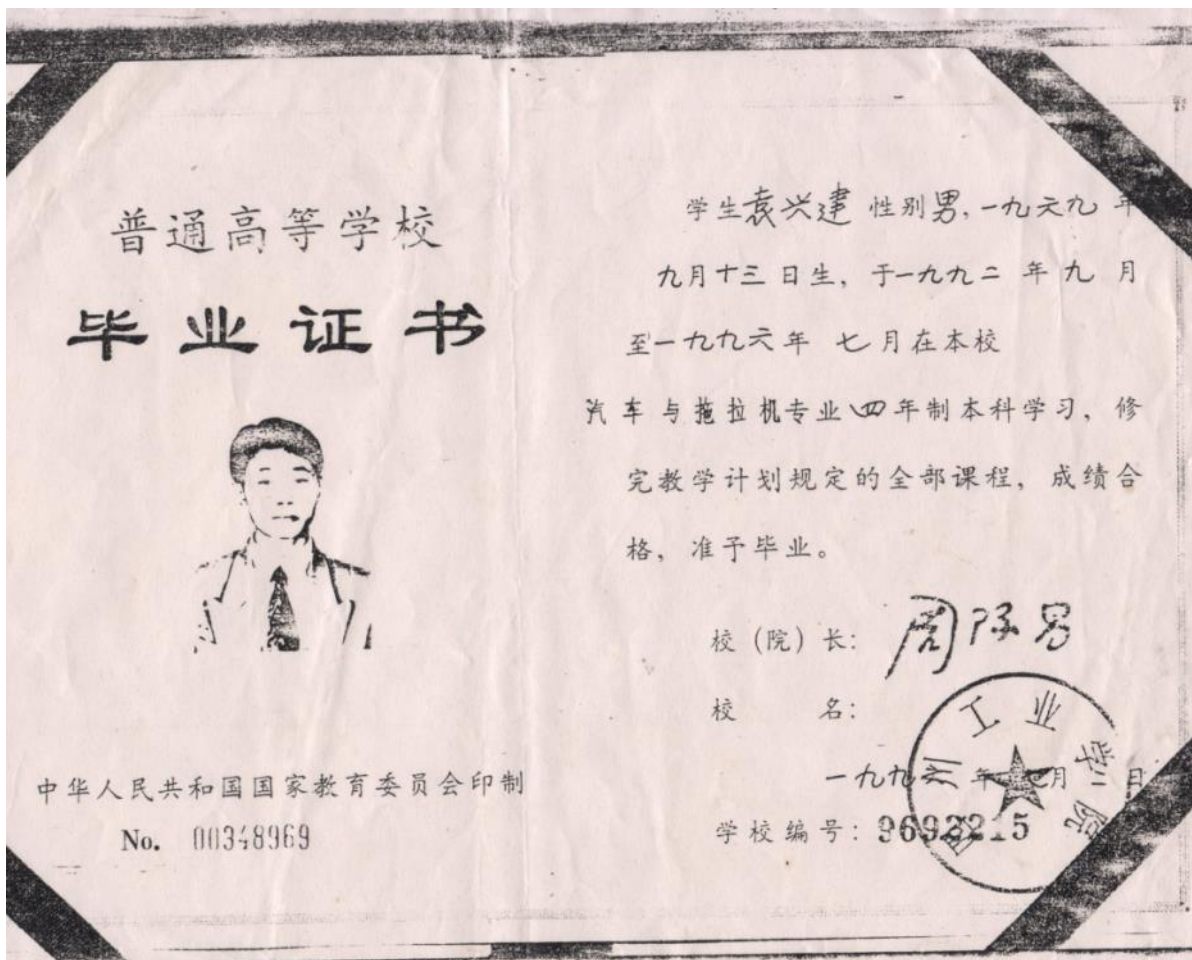 普通高等学校
毕业证书
中华人民共和国国家教育委员会印制
No. 00348969
学生袁兴建 性别男,一九六九 年
九月十三 日生,于一九九二 年 九 月
至一九九六年 七月在本校
汽车与拖拉机专业四年制本科学习,修
完教学计划规定的全部课程,成绩合
格,准予毕业。
校(院)长:周
校 名:
工业学院
一九九六 年 七月 日
学校编号: